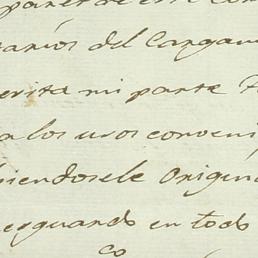 parte de este con
tarios del Cargam
erita mi parte F
a los usos conveni
biendosele Origin
resguardo en todo
co